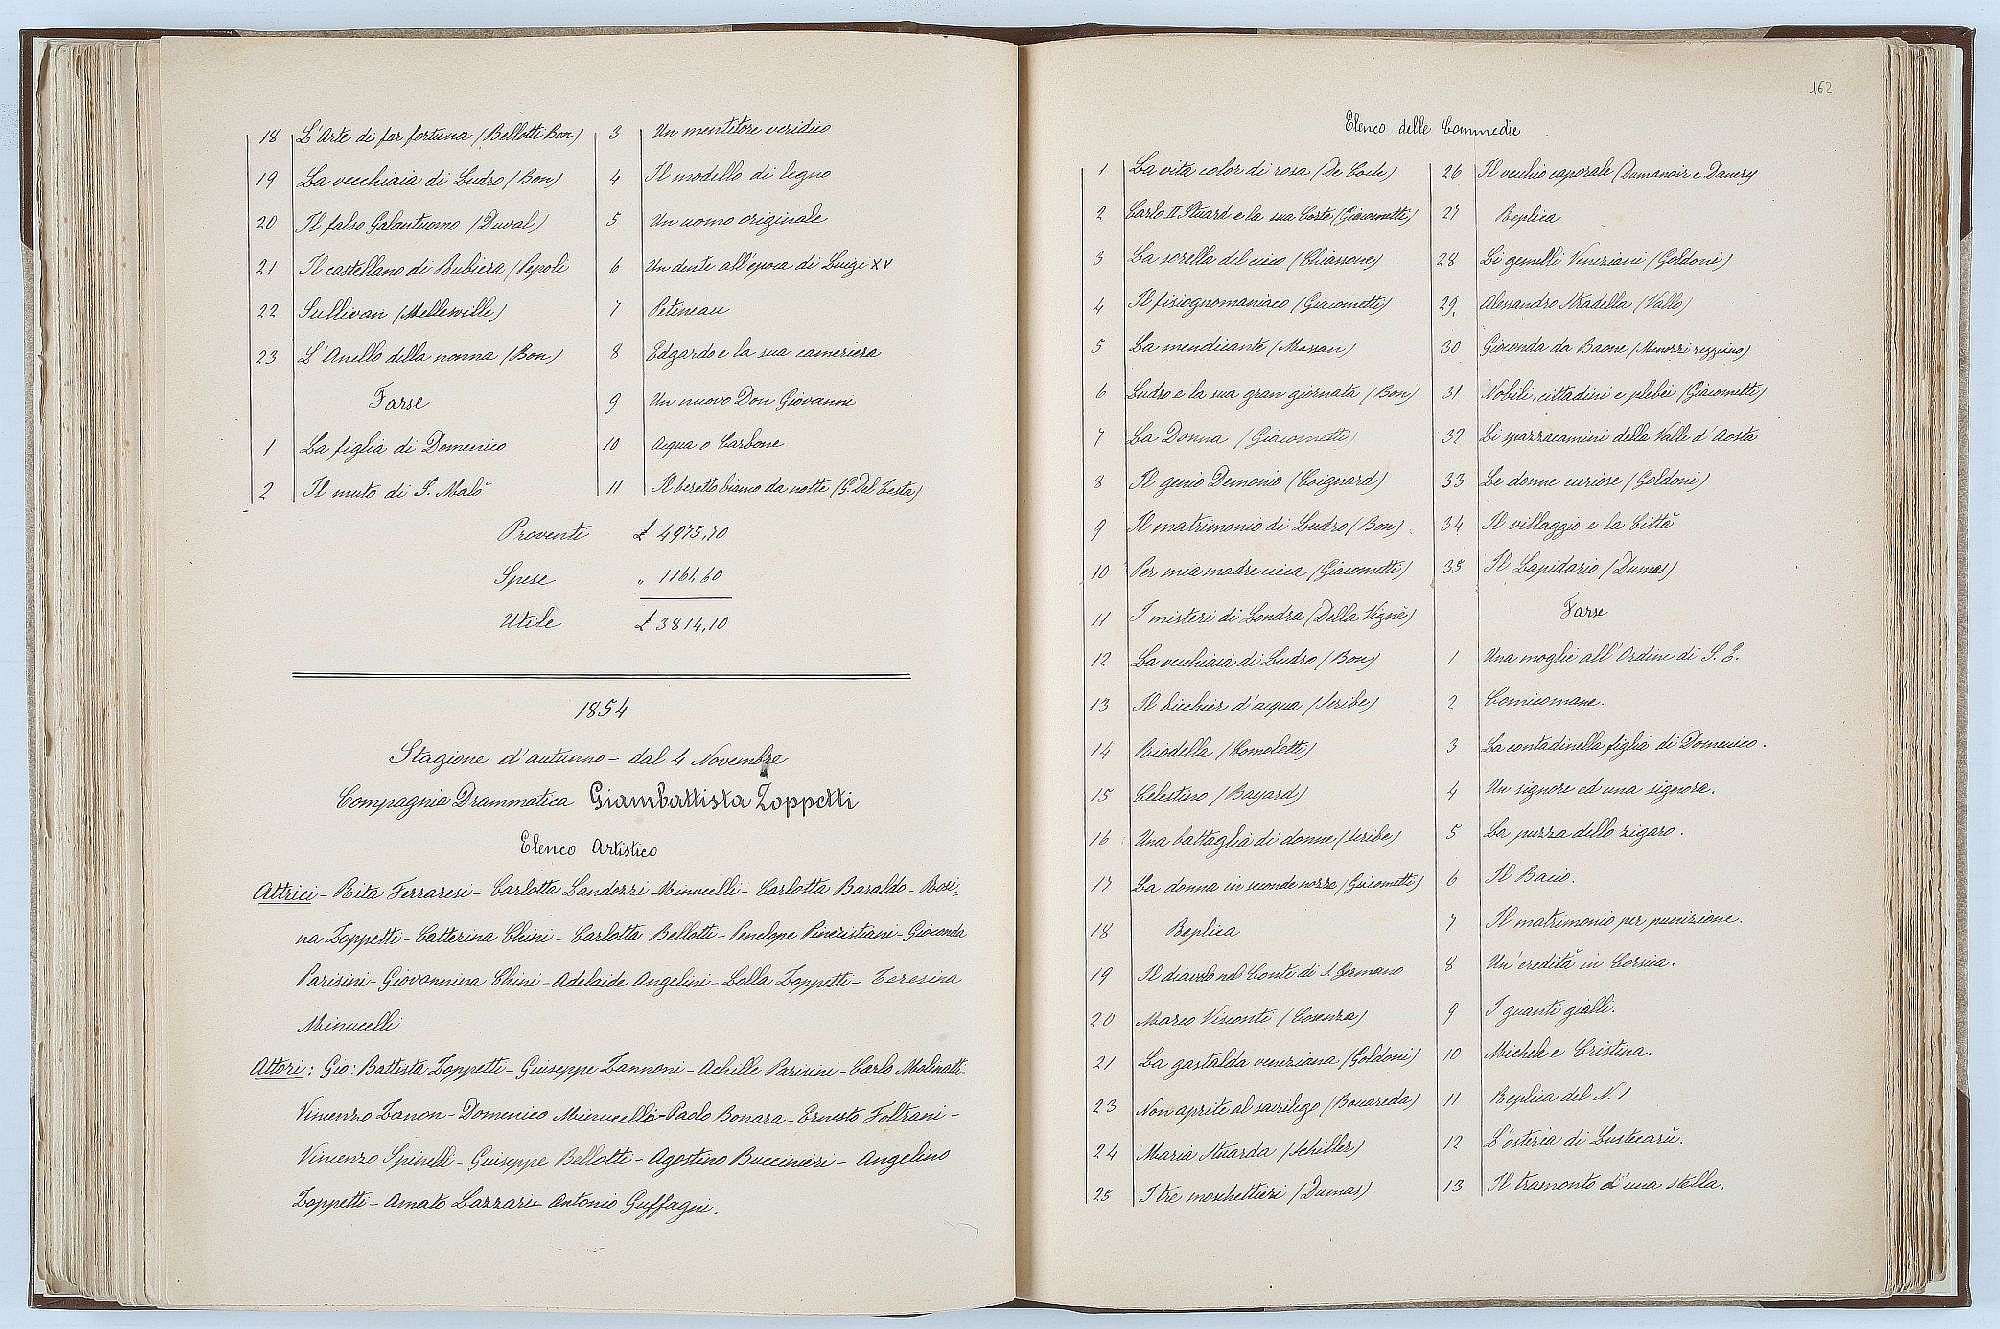 18 L'Arte di far fortuna (Bellotti Bon)
19 La vecchiaia di Ludro (Bon)
20 Il falso Galantuomo (Duval)
21 Il castellano di Rubiera (Pepoli
22 Sullivan (Mellewille)
23 L'Anello della nonna (Bon)
Farse
1 La figlia di Domenico
2 Il muto di S. Malò
3 Un mentitore veridico
4 Il modello di legno
5 Un uomo originale
6 Un dente all'epoca di Luigi XV
7 Petineau
8 Edgardo e la sua cameriera
9 Un nuovo Don Giovanni
10 Acqua o Carbone
11 Il beretto bianco da notte (G. Del Testa)
Proventi £ 4975,70
Spese " 1161,60
Utile £ 3814,10
1854
Stagione d'autunno - dal 4 Novembre
Compagnia Drammatica Giambattista Zoppetti
Elenco Artistico
Attrici - Rita Ferraresi - Carlotta Landozzi Minucelli - Carlotta Baraldo - Rosi-
na Zoppetti - Catterina Chini - Carlotta Bellotti - Penelope Pincristiani - Gioconda
Parisini - Giovannina Chini - Adelaide Angelini - Lella Zoppetti - Teresina
Minucelli
Attori: Gio: Battista Zoppetti - Giuseppe Zannoni - Achille Parisini - Carlo Molinatti
Vincenzo Zanon - Domenico Minucelli - Paolo Bonara - Ernesto Foltrani -
Vincenzo Spinelli - Guiseppe Bellotti - Agostino Buccinieri - Angelino
Zoppetti - Amato Lazzari - Antonio Guffagni.
162
Elenco delle Commedie
1 La vita color di rosa (De Cock)
2 Carlo II Stuard e la sua Corte (Giacometti)
3 La sorella del cieco (Chiassone)
4 Il fisiognomaniaco (Giacometti)
5 La mendicante (Massan)
6 Ludro e la sua gran giornata (Bon)
7 La Donna (Giacometti)
8 Il genio Demonio (Coignard)
9 Il matrimonio di Ludro (Bon)
10 Per mia madre cieca (Giacometti)
11 I misteri di Londra (Della Vigne)
12 La vecchiaia di Ludro (Bon)
13 Il bicchier d'acqua (Scribe)
14 Riodella (Comoletti)
15 Celestino (Bayard)
16 Una battaglia di donne (Scribe)
17 La donna in seconde nozze (Giacometti)
18 Replica
19 Il diavolo nel Conte di S. Germano
20 Marco Visconti (Cosenza)
21 La gastalda veneziana (Goldoni)
23 Non aprite al sacrilego (Bouareda)
24 Maria Stuarda (Schiller)
25 I tre moschettieri (Dumas)
26 Il vecchio caporale (Dumanoir e Danery
27 Replica
28 Li gemelli Veneziani (Goldoni)
29. Alessandro Stradella (Vallo)
30 Gioconda da Baone (Menozzi reggiano)
31 Nobili, cittadini e plebei (Giacometti)
32 Li spazzacamini della Valle d'Aosta
33 Le donne curiose (Goldoni)
34 Il villaggio e la Città
35 Il Lapidario (Dumas)
Farse
1 Una moglie all'Ordine di S. E.
2 Comicomane.
3 La contadinella figlia di Domenico.
4 Un signore ed una signora.
5 La puzza dello zigaro.
6 Il Bacio.
7 Il matrimonio per punizione.
8 Un'eredità in Corsica.
9 I guanti gialli.
10 Michele e Cristina.
11 Replica del N. 1
12 L'osteria di Lustucarù.
13 Il tramonto d'una stella.